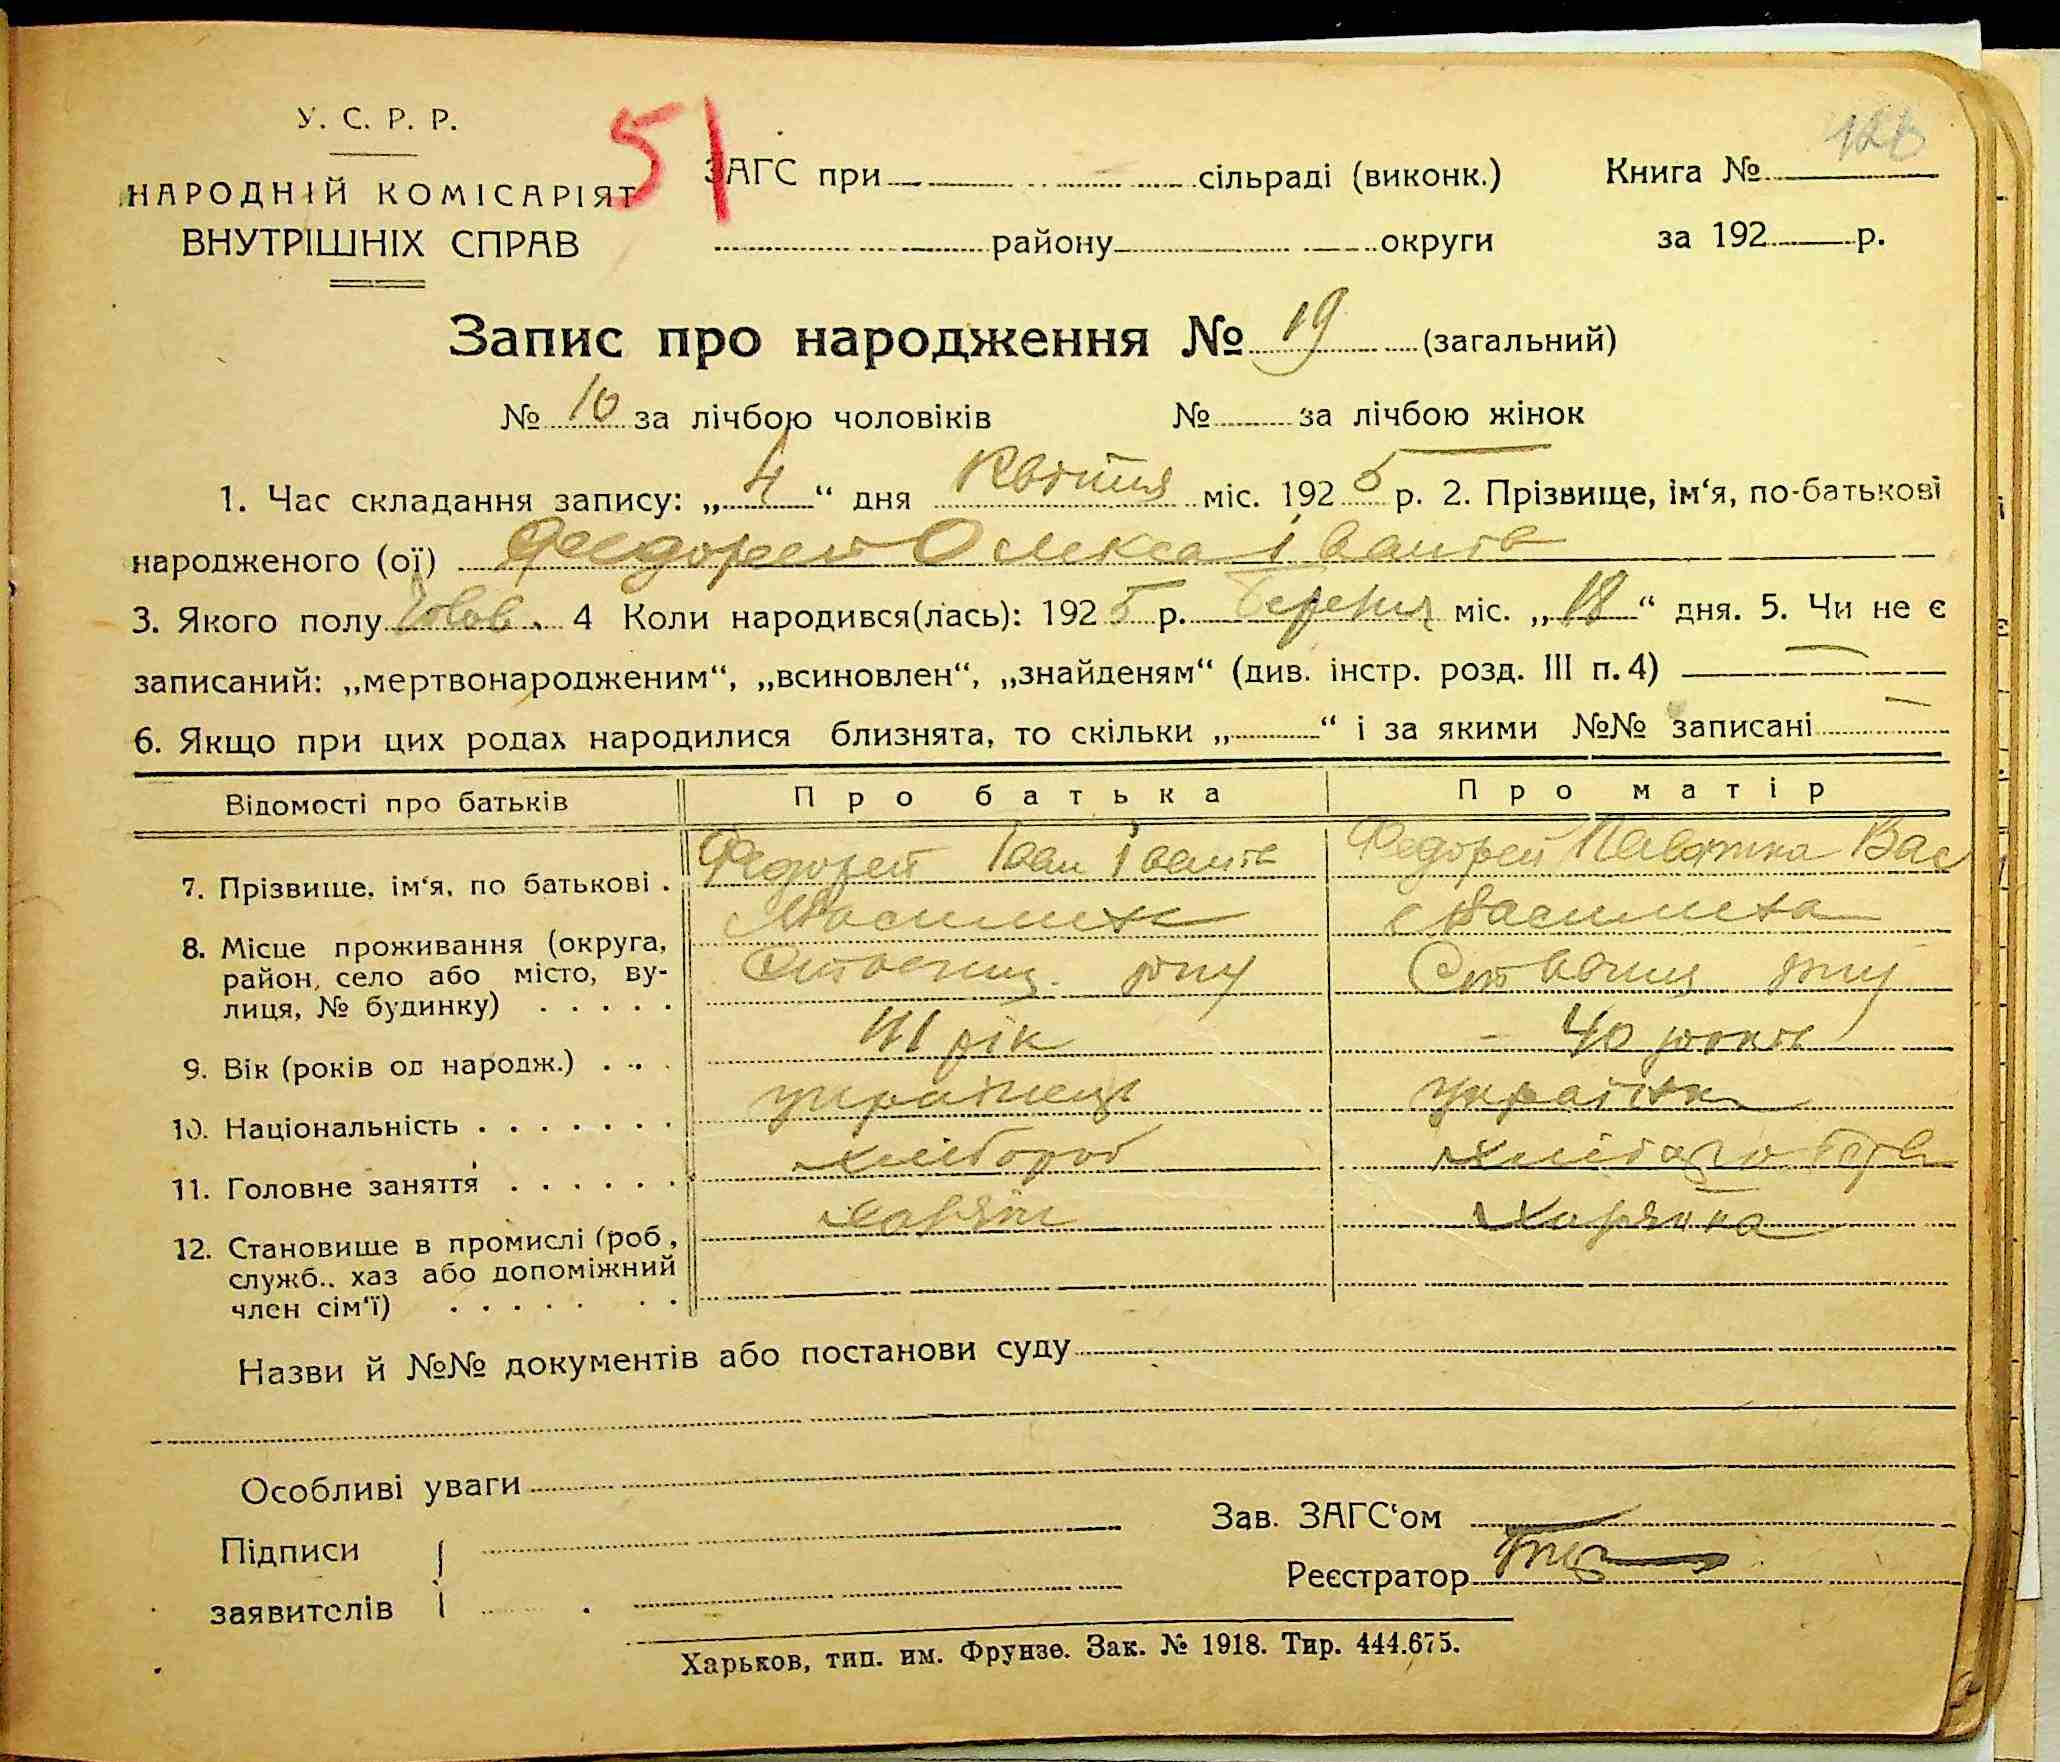 У. С. Р. Р.
НАРОДНІЙ КОМІСАРІЯТ
ВНУТРІШНІХ СПРАВ
51
ЗАГС при сільраді (виконк.)
району округи
Книга №
за 192 р.
Запис про народження № 19 (загальний)
№ 10 за лічбою чоловіків № за лічбою жінок
1. Час складання запису: „4“ дня Квітня міс. 1925 р. 2. Прізвище, ім‘я, по-батькові
народженого (ої) Федорей Олекса Іванів
3. Якого полу Чолов. 4 Коли народився(лась): 1925 р. Березня міс. „18“ дня. 5. Чи не є
записаний: „мертвонародженим“, „всиновлен“, „знайденям“ (див. інстр. розд. III п. 4) —
6. Якщо при цих родах народилися близнята, то скільки „ “ і за якими №№ записані —
Відомості про батьків Про батька Про матір
7. Прізвище, ім‘я, по батькові . Федорей Іван Іванів Федорей Вас
8. Місце проживання (округа,
район, село або місто, ву-
лиця, № будинку) . . . . .
9. Вік (років од народж.) . . . 41 рік 40 років
10. Національність . . . . . . . українець українка
11. Головне заняття . . . . . . хлібороб
12. Становище в промислі (роб,
служб., хаз або допоміжний
член сім‘ї) . . . . . . .
Назви й №№ документів або постанови суду
Особливі уваги
Підписи
заявителів
Зав. ЗАГС‘ом
Реєстратор
Харьков, тип. им. Фрунзе. Зак. № 1918. Тир. 444.675.